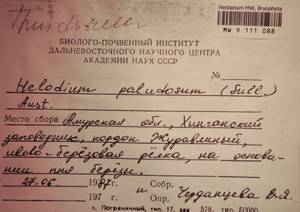 Thuidiaceae
Herbarium MW, Bryophyta
MW 9 111 088
БИОЛОГО-ПОЧВЕННЫЙ ИНСТИТУТ
ДАЛЬНЕВОСТОЧНОГО НАУЧНОГО ЦЕНТРА
АКАДЕМИИ НАУК СССР
№
Helodium paludosum (Sull.)
Aust.
Место сбора Амурская обл., Хинганский
заповедник, кордон Журавлиный,
ивово-берёзовая рёлка, на основа-
нии пня березы.
27.06 1977 г. Собр. Черданцева В.Я.
197 г. Опр.
п. Пограничный, тип. 17, зак.